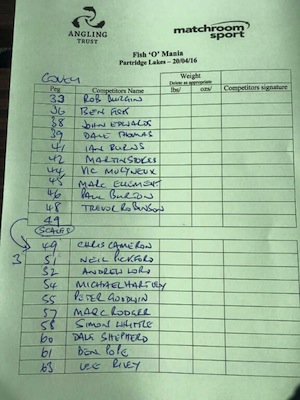 ANGLING
TRUST
matchroom
sport
Fish 'O' Mania
Partridge Lakes – 20/04/16
COVEY
Weight
Peg Competitors Name Delete as appropriate Competitors signature
lbs/ ozs/
33 ROB BURGIN
36 BEN FISK
38 JOHN EDWARDS
39 DALE THOMAS
41 IAN BURNS
42 MARTIN STOKES
44 VIC MOLYNEUX
45 MARC CLEMENT
46 PAUL BURTON
48 TREVOR ROBINSON
49
SCALES
49 CHRIS CAMERON
3 51 NEIL PICKFORD
52 ANDREW LORD
54 MICHAEL HARTLEY
55 PETER GOODWIN
57 MARC RODGER
58 SIMON WHITTLE
60 DALE SHEPHERD
61 BEN POPE
63 LEE RILEY